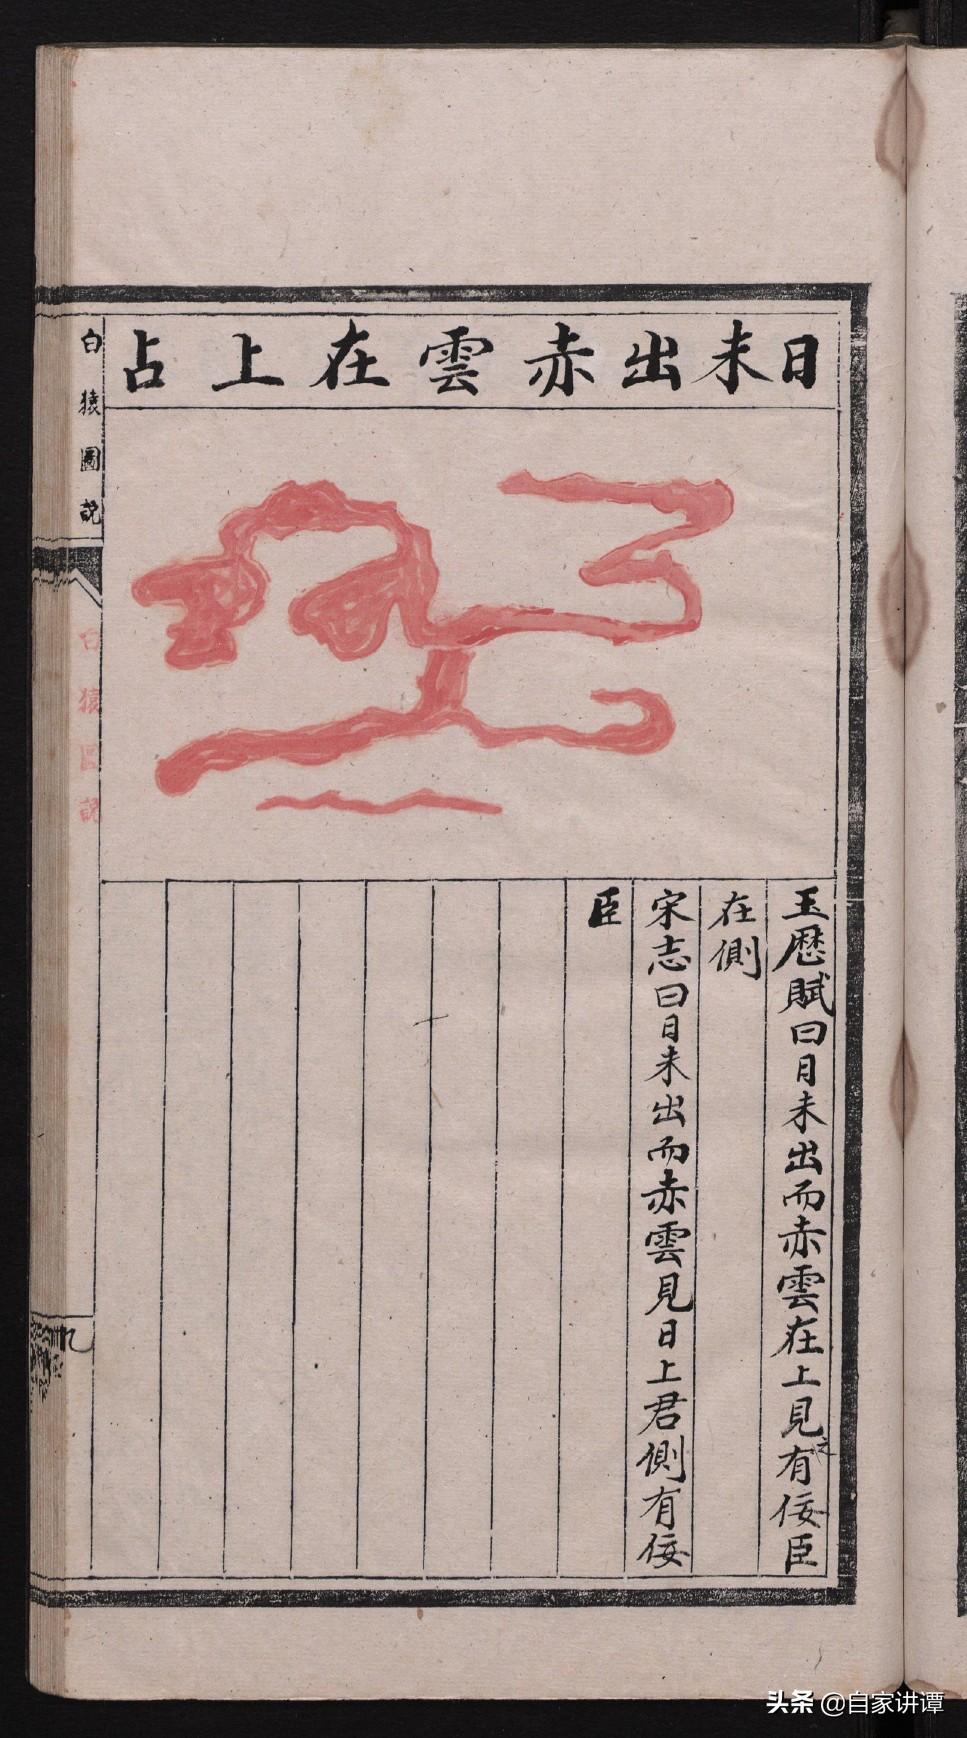 日未出赤雲在上占
玉歷賦曰日未出而赤雲在上見之有佞臣
在側
宋志曰日未出而赤雲見日上君側有佞
臣
白猿圖說
白猿圖說
九
头条 @自家讲谭